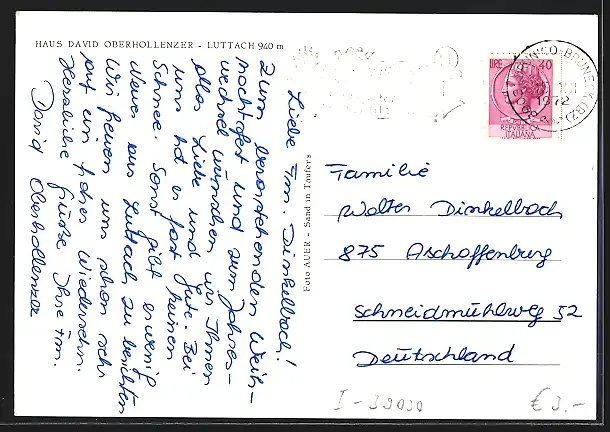 HAUS DAVID OBERHOLLENZER - LUTTACH 940 m
Liebe Fam. Dinkelbach!
Zum bevorstehenden Weih-
nachtsfest und zum Jahres-
wechsel wünschen wir Ihnen
alles Liebe und Gute. Bei
uns hat es fast keinen
Schnee. Sonst gibt es wenig
Neues aus Luttach zu berichten
Wir freuen uns schon sehr
auf ein frohes Wiedersehn.
Herzliche Grüße Ihre Fam.
David Oberhollenzer
Foto AUER - Sand in Taufers
LIRE 40
REPVBBLICA
ITALIANA
1972
(BZ)
Familie
Walter Dinkelbach
875 Aschaffenburg
Schneidmühlweg 52
Deutschland
I - 39030
€ 3.-